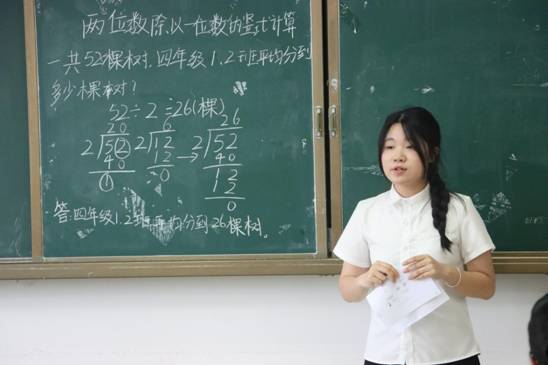 两位数除以一位数的竖式计算
一共52棵树,四年级1.2班平均分到
多少棵树?
52÷2=26(棵)
20 6 26
2)52 2)12 → 2)52
40 12 40
1 0 12
12
0
答:四年级1.2班平均分到26棵树。